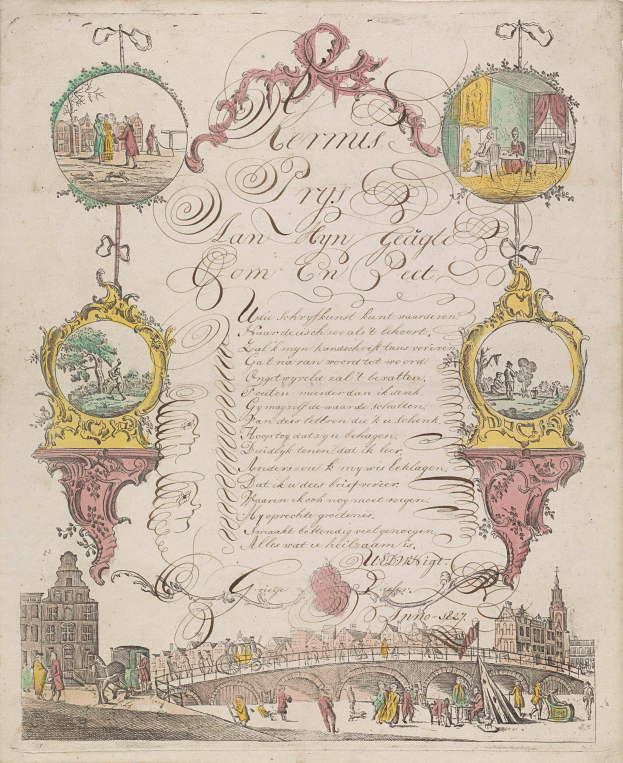 Kermis
Prys
Aan Myn Geägte
Oom En Peet
U die schryfkunst kunt waardeeren
Naar de eisch zoo als 't behoort,
Zend k myn handschrift tans vereeren
Ga't na van woord tot woord.
Ongetwyveld zal 't bevatten,
Fouten meerder dan ik denk
Gy mag zelf de waarde schatten
Van dees lettren die k u schenk
Hoop tog dat zy u behagen,
Duidlyk tonen dat ik leer
Anders zou k my wis beklagen
Dat ik u dees brief vereer
Waar in ik ook nog moet voegen
Myn oprechte groetenis,
Smaakt bestendig veel genoegen
Alles wat u heilzaam is,
UEDWNigt
Grietje
Anno 1827